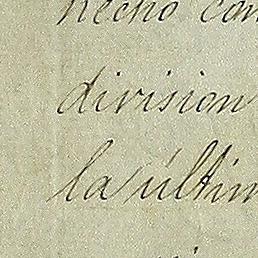 hecho con
division
la últim